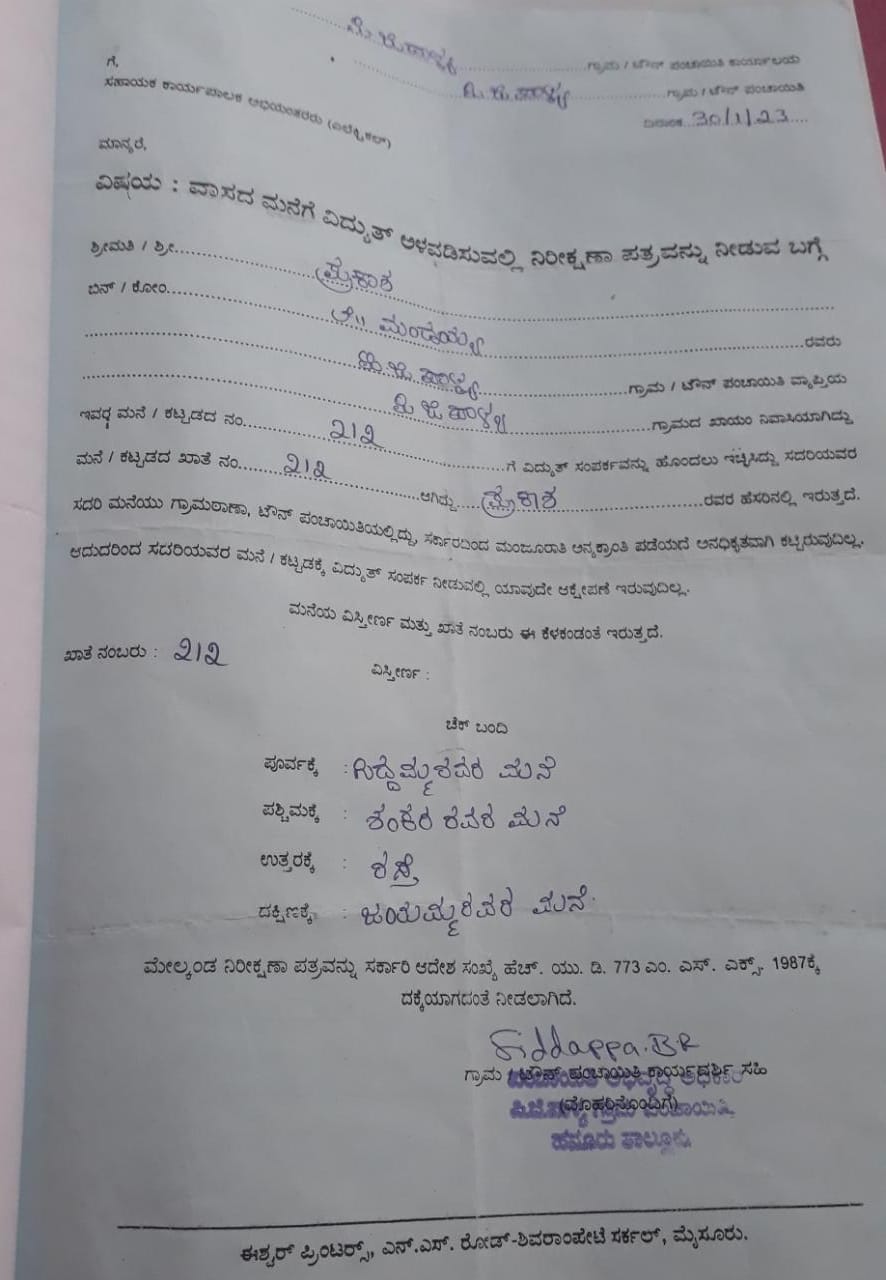 ಪಿ.ಜಿ.ಪಾಳ್ಯ ಗ್ರಾಮ / ಟೌನ್ ಪಂಚಾಯಿತಿ ಕಾರ್ಯಾಲಯ
ಪಿ.ಜಿ.ಪಾಳ್ಯ ಗ್ರಾಮ / ಟೌನ್ ಪಂಚಾಯಿತಿ
ದಿನಾಂಕ 30/1/23
ಗೆ,
ಸಹಾಯಕ ಕಾರ್ಯಪಾಲಕ ಅಭಿಯಂತರರು (ಎಲೆಕ್ಟ್ರಿಕಲ್)
ಮಾನ್ಯರೆ,
ವಿಷಯ : ವಾಸದ ಮನೆಗೆ ವಿದ್ಯುತ್ ಅಳವಡಿಸುವಲ್ಲಿ ನಿರೀಕ್ಷಣಾ ಪತ್ರವನ್ನು ನೀಡುವ ಬಗ್ಗೆ
ಶ್ರೀಮತಿ / ಶ್ರೀ ಪ್ರಕಾಶ
ಬಿನ್ / ಕೋಂ ಮಂಡಯ್ಯ ರವರು
ಪಿ.ಜಿ.ಪಾಳ್ಯ ಗ್ರಾಮ / ಟೌನ್ ಪಂಚಾಯಿತಿ ವ್ಯಾಪ್ತಿಯ
ಪಿ.ಜಿ.ಪಾಳ್ಯ ಗ್ರಾಮದ ಖಾಯಂ ನಿವಾಸಿಯಾಗಿದ್ದು
ಇವರ ಮನೆ / ಕಟ್ಟಡದ ನಂ. 212 ಗೆ ವಿದ್ಯುತ್ ಸಂಪರ್ಕವನ್ನು ಹೊಂದಲು ಇಚ್ಛಿಸಿದ್ದು ಸದರಿಯವರ
ಮನೆ / ಕಟ್ಟಡದ ಖಾತೆ ನಂ. 212 ಆಗಿದ್ದು ಪ್ರಕಾಶ ರವರ ಹೆಸರಿನಲ್ಲಿ ಇರುತ್ತದೆ.
ಸದರಿ ಮನೆಯು ಗ್ರಾಮಠಾಣಾ, ಟೌನ್ ಪಂಚಾಯಿತಿಯಲ್ಲಿದ್ದು, ಸರ್ಕಾರದಿಂದ ಮಂಜೂರಾತಿ ಅನ್ಯಕ್ರಾಂತಿ ಪಡೆಯದೆ ಅನಧಿಕೃತವಾಗಿ ಕಟ್ಟಿರುವುದಿಲ್ಲ.
ಆದುದರಿಂದ ಸದರಿಯವರ ಮನೆ / ಕಟ್ಟಡಕ್ಕೆ ವಿದ್ಯುತ್ ಸಂಪರ್ಕ ನೀಡುವಲ್ಲಿ ಯಾವುದೇ ಆಕ್ಷೇಪಣೆ ಇರುವುದಿಲ್ಲ.
ಮನೆಯ ವಿಸ್ತೀರ್ಣ ಮತ್ತು ಖಾತೆ ನಂಬರು ಈ ಕೆಳಕಂಡಂತೆ ಇರುತ್ತದೆ.
ಖಾತೆ ನಂಬರು : 212
ವಿಸ್ತೀರ್ಣ :
ಚೆಕ್ ಬಂದಿ
ಪೂರ್ವಕ್ಕೆ : ಸಿದ್ದಮ್ಮರವರ ಮನೆ
ಪಶ್ಚಿಮಕ್ಕೆ : ಶಂಕರ ರವರ ಮನೆ
ಉತ್ತರಕ್ಕೆ : ರಸ್ತೆ
ದಕ್ಷಿಣಕ್ಕೆ : ಜಯಮ್ಮರವರ ಮನೆ
ಮೇಲ್ಕಂಡ ನಿರೀಕ್ಷಣಾ ಪತ್ರವನ್ನು ಸರ್ಕಾರಿ ಆದೇಶ ಸಂಖ್ಯೆ ಹೆಚ್. ಯು. ಡಿ. 773 ಎಂ. ಎಸ್. ಎಕ್ಸ್. 1987ಕ್ಕೆ
ದಕ್ಕೆಯಾಗದಂತೆ ನೀಡಲಾಗಿದೆ.
Siddappa.BR
ಗ್ರಾಮ / ಟೌನ್ ಪಂಚಾಯಿತಿ ಕಾರ್ಯದರ್ಶಿ ಸಹಿ
(ಮೊಹರಿನೊಂದಿಗೆ)
ಪಂಚಾಯಿತಿ ಅಭಿವೃದ್ಧಿ ಅಧಿಕಾರಿ
ಪಿ.ಜಿ.ಪಾಳ್ಯ ಗ್ರಾಮ ಪಂಚಾಯಿತಿ
ಹನೂರು ತಾಲ್ಲೂಕು
ಈಶ್ವರ್ ಪ್ರಿಂಟರ್ಸ್, ಎನ್.ಎಸ್. ರೋಡ್-ಶಿವರಾಂಪೇಟೆ ಸರ್ಕಲ್, ಮೈಸೂರು.